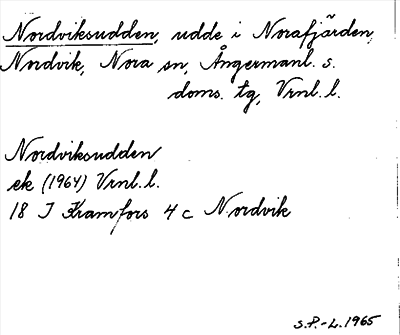 Nordviksudden, udde i Norafjärden,
Nordvik, Nora sn, Ångermanl. s.
doms. tg, Vrnl. l.
Nordviksudden
ek (1964) Vrnl. l.
18 I Kramfors 4 c Nordvik
S.P.-L. 1965